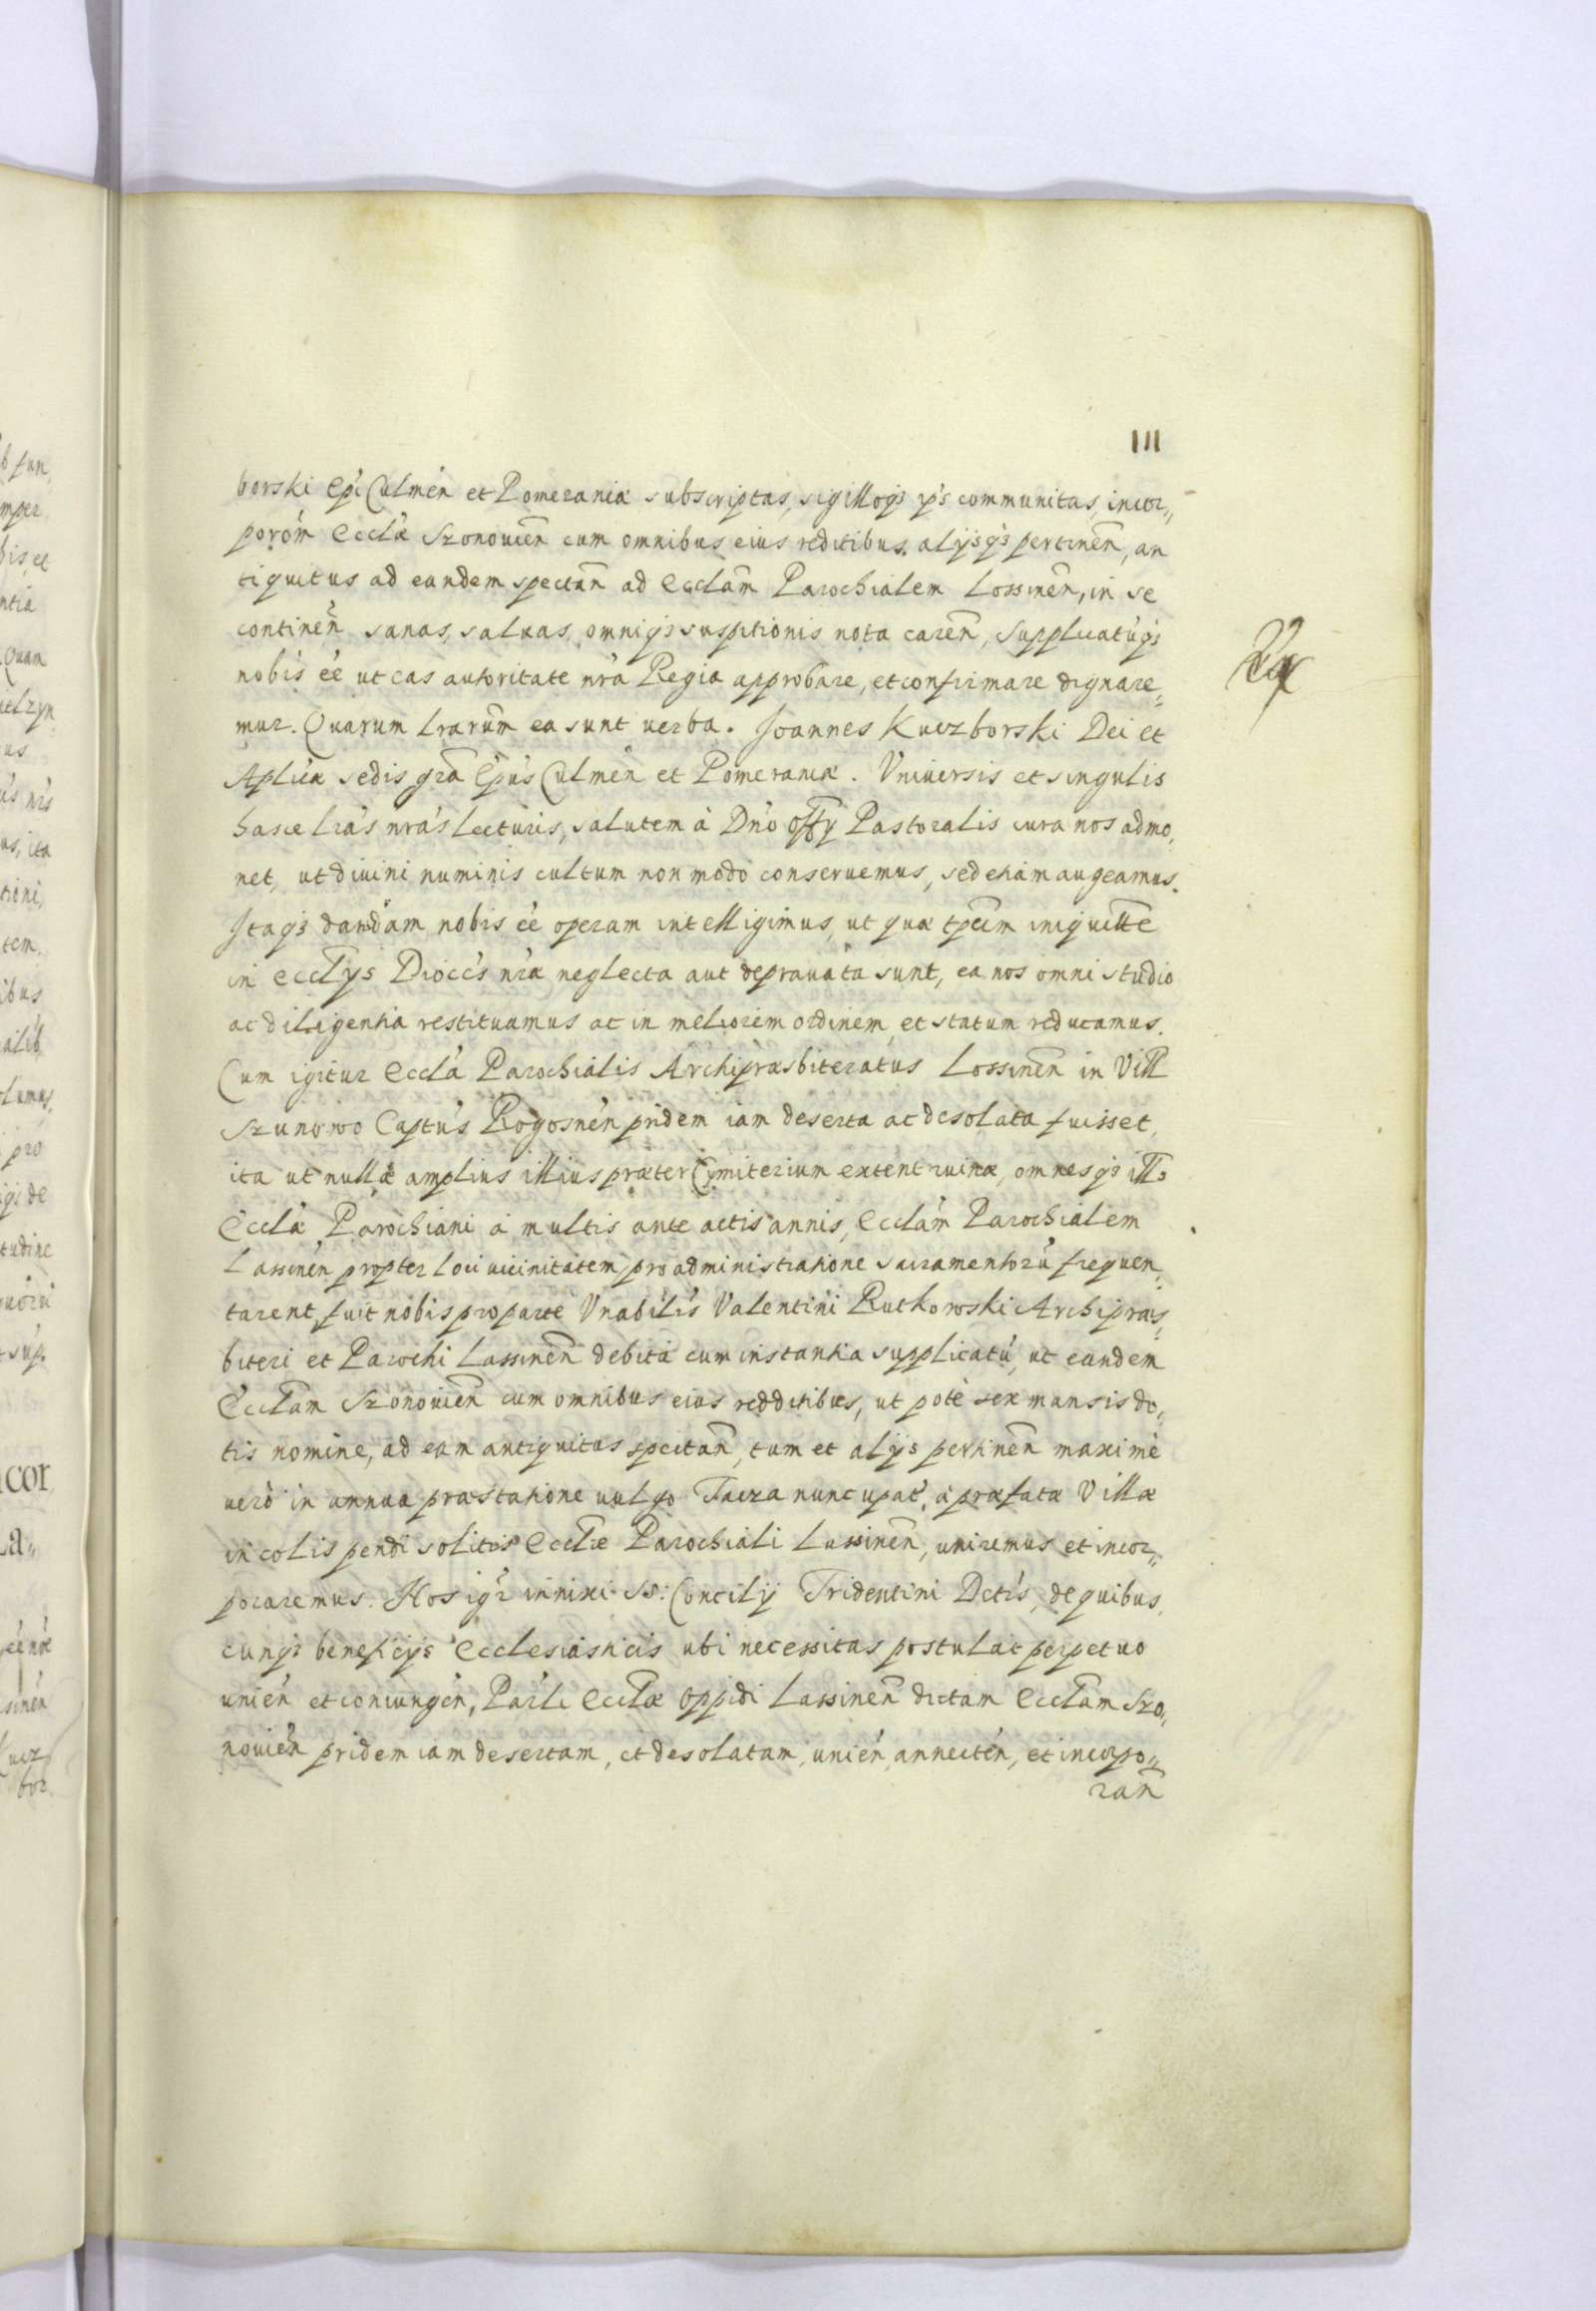 111
borski Epi Culmén et Pomeraniæ subscriptas, sigilloq3 ips communitas, incor„
poróm Ecclæ Szonouien̄ cum omnibus eius reditibus. alijsq3 pertinen̄, an
tiquitus ad eandem spectan̄ ad Ecclam̄ Parochialem Lossinen̄, in se
continen̄ sanas, saluas, omniq3 suspitionis nota caren̄, supplicatuq3
nobis ée ut eas autoritate nrá Regia approbare, et confirmare dignare„
mur. Quarum lrarum̄ ea sunt uerba. Joannes Kuczborski Dei et
Aplicæ sedis gra Epus Culmén et Pomeraniæ. Vniuersis et singulis
hasce lras nrás lecturis, salutem à Dno offy Pastoralis cura nos admo„
net, ut diuini numinis cultum non modo conseruemus, sed etiam augeamus.
Itaq3 dandam nobis ée operam intelligimus, ut quæ tpcim iniquitte
in ecclijs Dioces nræ neglecta aut deprauata sunt, ea nos omni studio
ac diligentia restituamus ac in meliorem ordinem et statum reducamus.
Cum igitur Eccla Parochialis Archipræsbiteratus Lossinen̄ in Vill
Szunowo Captus Rogosnén pridem iam deserta ac desolata fuisset,
ita ut nullæ amplius illius præter Cymiterium extent ruinæ, omnesq3 ill3
Ecclæ Parochiani à multis ante actis annis, Ecclam Parochialem
Lassinén propter loci uicinitatem pro administratione sacramentorú frequen„
tarent, fuit nobis pro parte Vnabilis Valentini Rutkowski Archipræs„
biteri et Parochi Lassinen̄ debita cum instantia supplicatú, ut eandem
Ecclam̄ Szonouien̄ cum omnibus eius redditibus, ut poté sex mansis do„
tis nomine, ad eam antiquitus spectan̄, tum et alijs pertinen̄ maximè
uerò in annua præstatione uulgo Tacza nuncupat, à præfatæ Villæ
incolis pendi solitis Ecclæ Parochiali Lassinen̄, uniremus et incor„
poraremus. Nos igr innixi SS: Concilij Tridentini Dctis, de quibus
cunq3 beneficijs Ecclesiasticis ubi necessitas postulat perpetuo
unién et coniungén, Parli Ecclæ Oppidi Lassinen̄ dictam Ecclam̄ Szo„
nouién pridem iam desertam, et desolatam, unién, annectén, et incorpo„
ran̄